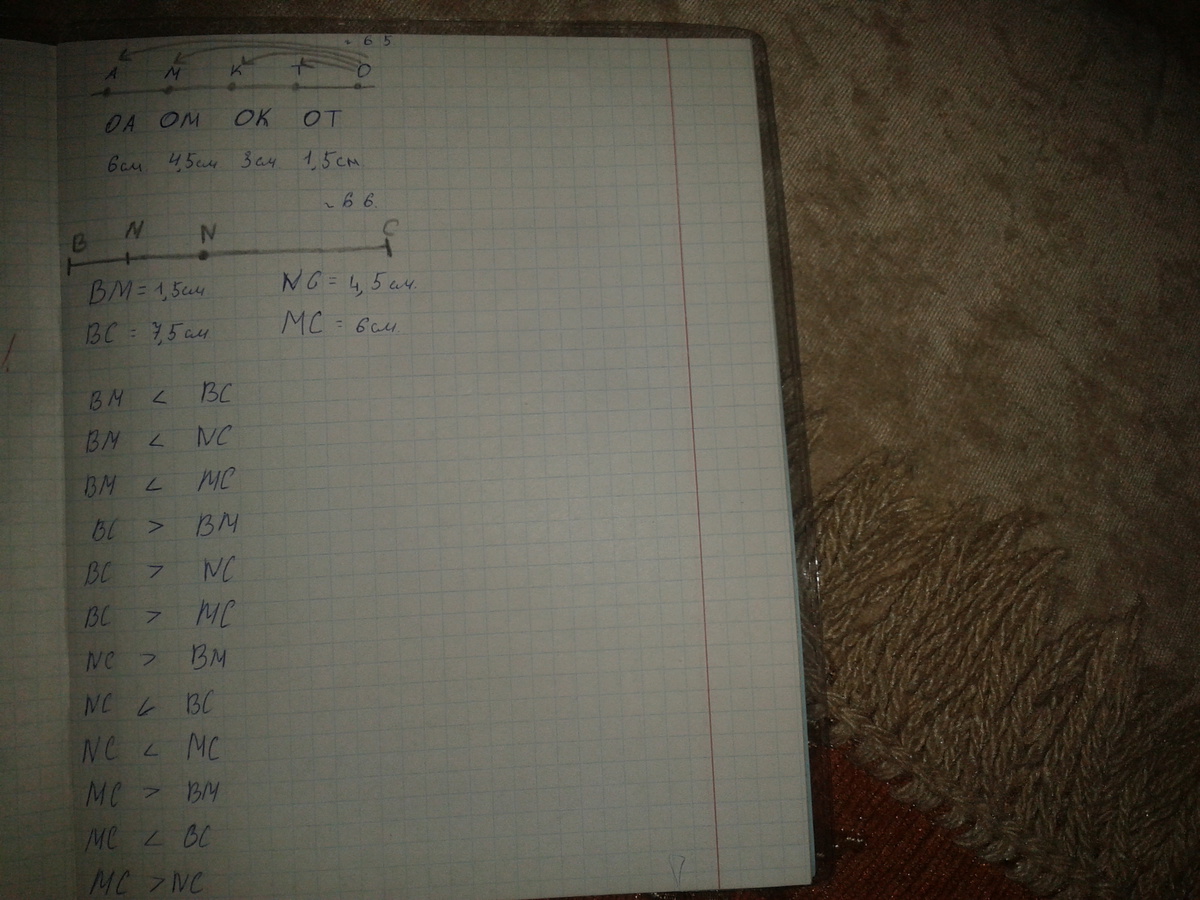 ~ 65
А М К Т О
ОА ОМ ОК ОТ
6см 4,5см 3см 1,5см
~ 66.
B N N C
BM = 1,5см NC = 4,5см.
BC = 7,5см MC = 6см
BM < BC
BM < NC
BM < MC
BC > BM
BC > NC
BC > MC
NC > BM
NC < BC
NC < MC
MC > BM
MC < BC
MC > NC